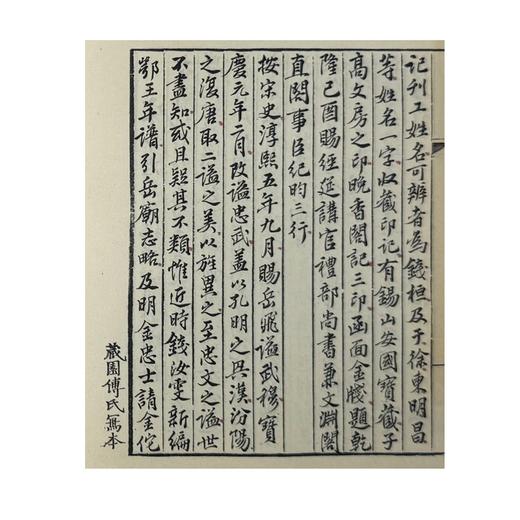 記刊工姓名可辨者爲錢桓及于徐東明昌
等姓名一字收藏印記有錫山安國寶藏子
高文房之印晚香閣記三印函面金牋題乾
隆己酉賜經筵講官禮部尚書兼文淵閣
直閣事臣紀昀三行
按宋史淳熙五年九月賜岳飛謚武穆寶
慶元年二月改謚忠武蓋以孔明之興漢汾陽
之復唐取二謚之美以旌異之至忠文之謚世
不盡知或且疑其不類惟近時錢汝雯新編
鄂王年譜引岳廟志略及明金忠士請金佗
藏園傅氏寫本